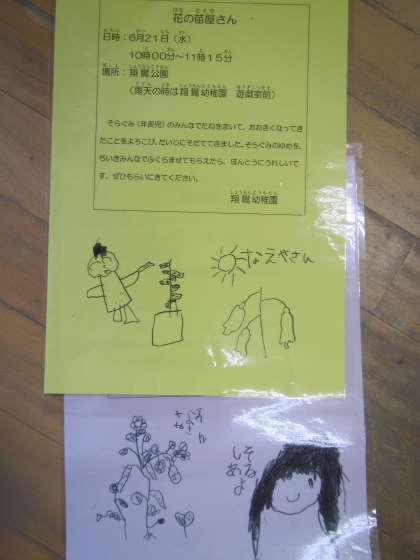 花の苗屋さん
日時：6月21日（水）
10時00分～11時15分
場所：翔鸞公園
（雨天の時は翔鸞幼稚園　遊戯室前）
そらぐみ（年長児）のみんなでたねをまいて、おおきくなってき
たことをよろこび、だいじにそだててきました。そらぐみのゆめを、
ちいきみんなでふくらませてもらえたら、ほんとうにうれしいで
す。ぜひもらいにきてください。
翔鸞幼稚園
なえやさん